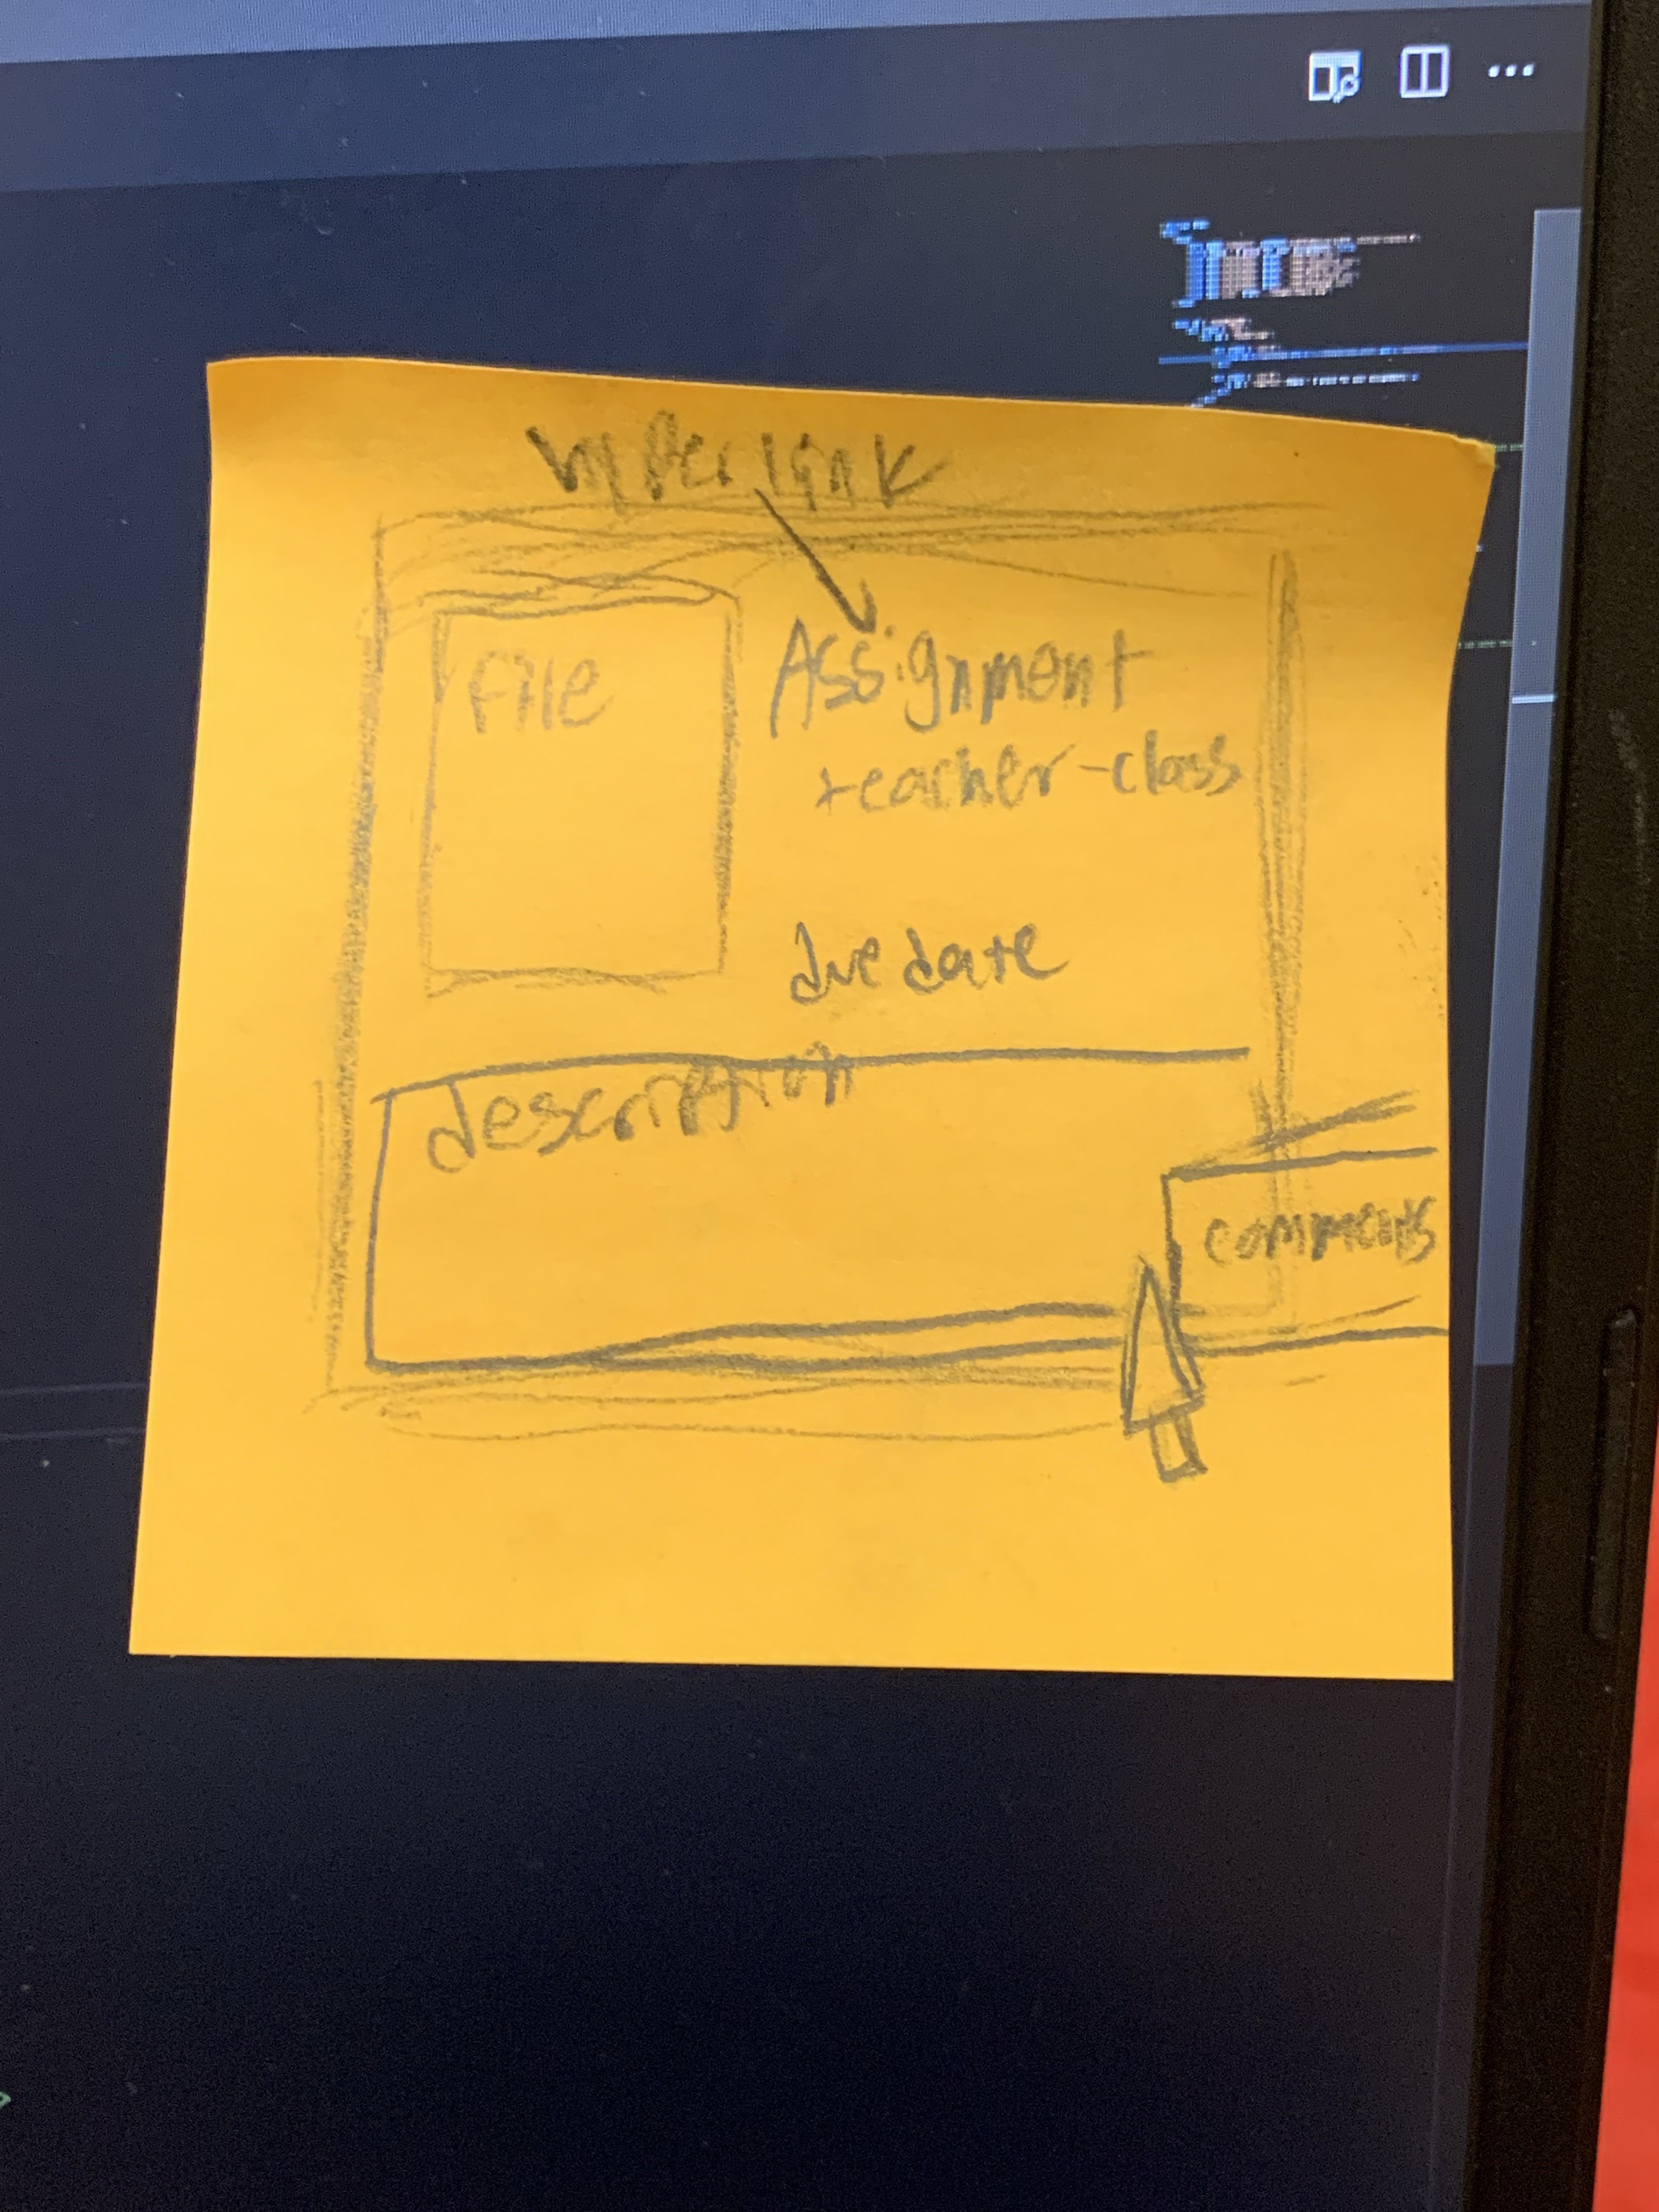 hyperlink
File
Assignment
teacher-class
due date
description
comments